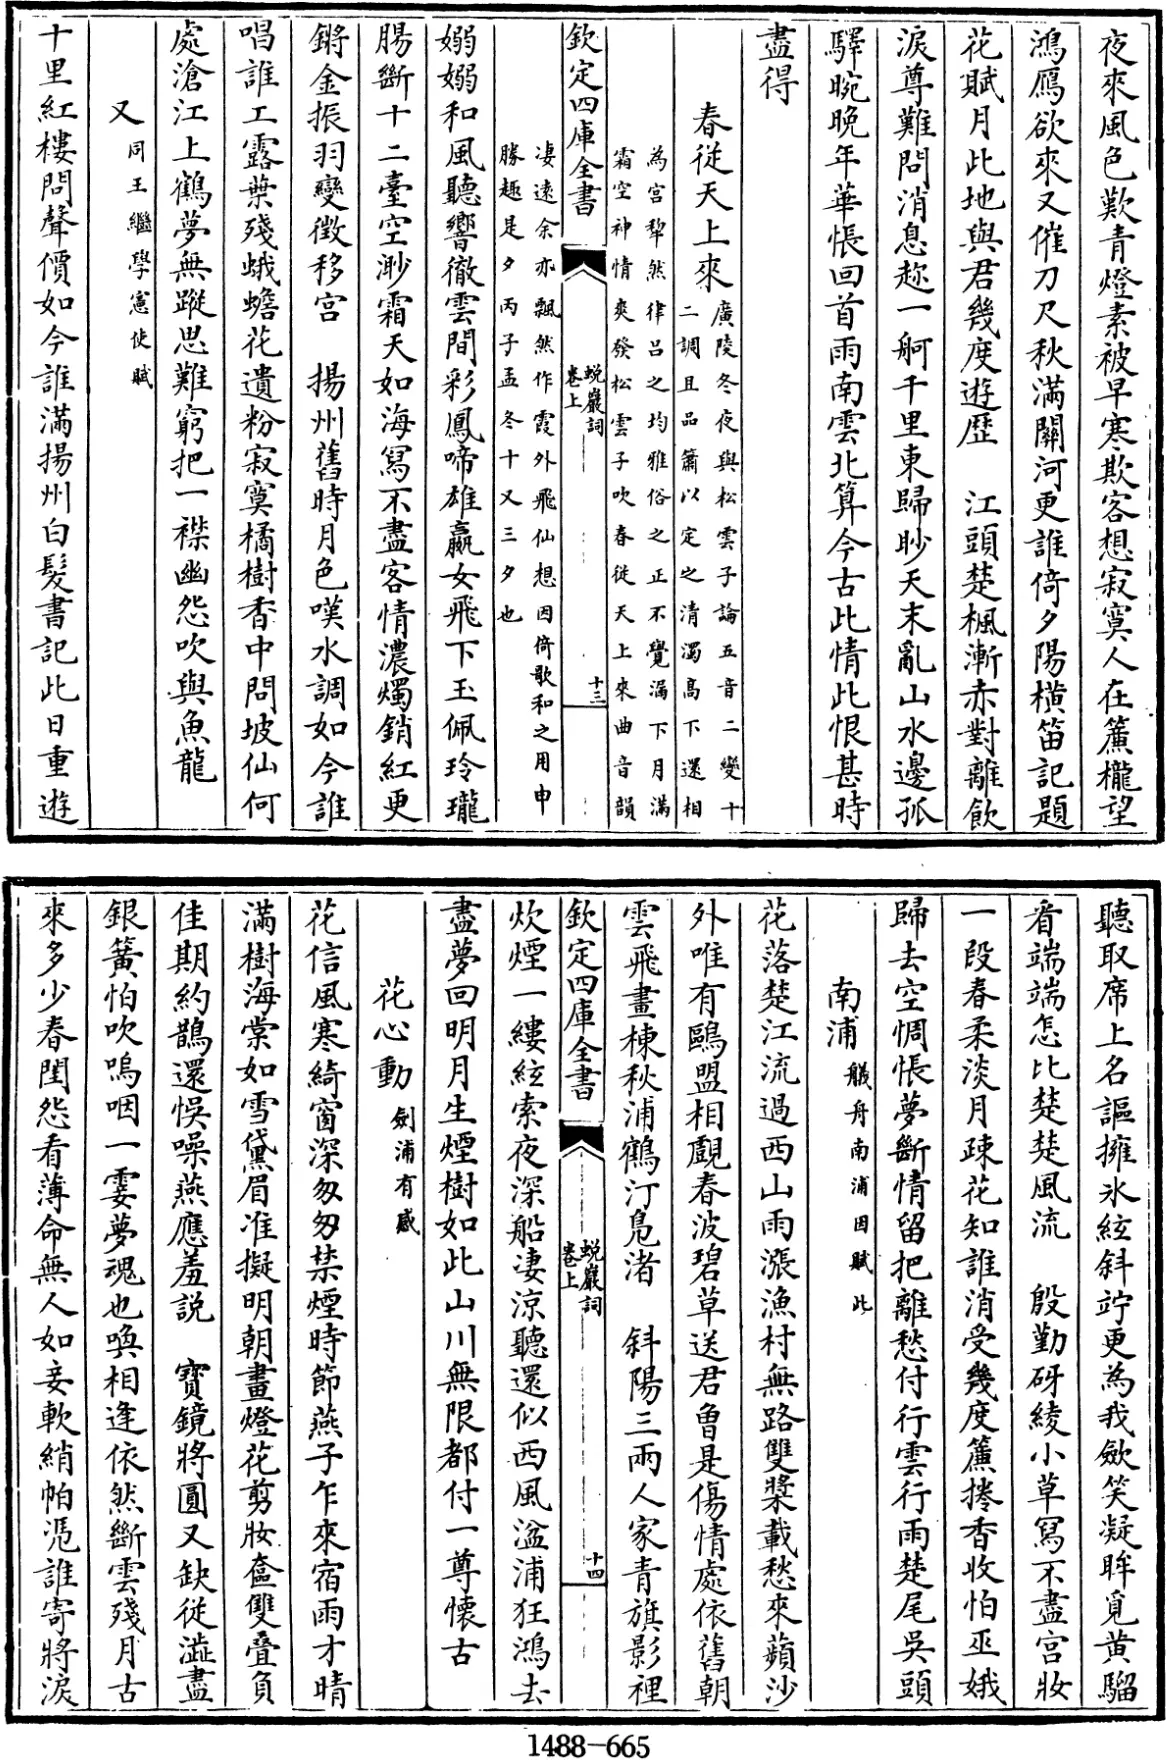 夜來風色歎青燈素被早寒欺客想寂寞人在簾櫳望
鴻鴈欲來又催刀尺秋滿關河更誰倚夕陽橫笛記題
花賦月此地與君幾度遊歷　江頭楚楓漸赤對離飲
淚尊難問消息趂一舸千里東歸眇天末亂山水邊孤
驛晼晚年華悵回首雨南雲北算今古此情此恨甚時
盡得
春從天上來
廣陵冬夜與松雲子論五音二變十
二調且品簫以定之清濁髙下還相
為宮犂然律呂之均雅俗之正不覺漏下月滿
霜空神情爽發松雲子吹春從天上來曲音韻
欽定四庫全書
蛻巖詞
卷上
十三
凄遠余亦飄然作霞外飛仙想因倚歌和之用申
勝趣是夕丙子孟冬十又三夕也
嫋嫋和風聽響徹雲間彩鳳啼雄嬴女飛下玉佩玲瓏
腸斷十二臺空渺霜天如海寫不盡客情濃燭銷紅更
鏘金振羽變徵移宮　揚州舊時月色嘆水調如今誰
唱誰工露葉殘蛾蟾花遺粉寂寞橘樹香中問坡仙何
處滄江上鶴夢無蹤思難窮把一襟幽怨吹與魚龍
又
同王繼學憲使賦
十里紅樓問聲價如今誰滿揚州白髮書記此日重遊
聽取席上名謳擁氷絃斜竚更為我歛笑凝眸覓黃騮
看端端怎比楚楚風流　殷勤砑綾小草寫不盡宮妝
一段春柔淡月疎花知誰消受幾度簾捲香收怕巫娥
歸去空惆悵夢斷情留把離愁付行雲行雨楚尾吳頭
南浦
艤舟南浦因賦此
花落楚江流過西山雨漲漁村無路雙槳載愁來蘋沙
外唯有鷗盟相覰春波碧草送君曾是傷情處依舊朝
雲飛畫棟秋浦鶴汀鳬渚　斜陽三兩人家青旗影裡
欽定四庫全書
蛻巖詞
卷上
十四
炊煙一縷絃索夜深船凄涼聽還似西風湓浦狂鴻去
盡夢回明月生煙樹如此山川無限都付一尊懷古
花心動
劍浦有感
花信風寒綺窗深匆匆禁煙時節燕子乍來宿雨才晴
滿樹海棠如雪黛眉准擬明朝畫燈花剪妝奩雙疊負
佳期約鵲還悞噪燕應羞説　寶鏡將圓又缺從澁盡
銀簧怕吹嗚咽一霎夢魂也喚相逢依然斷雲殘月古
來多少春閨怨看薄命無人如妾軟綃帕憑誰寄將淚
1488—665